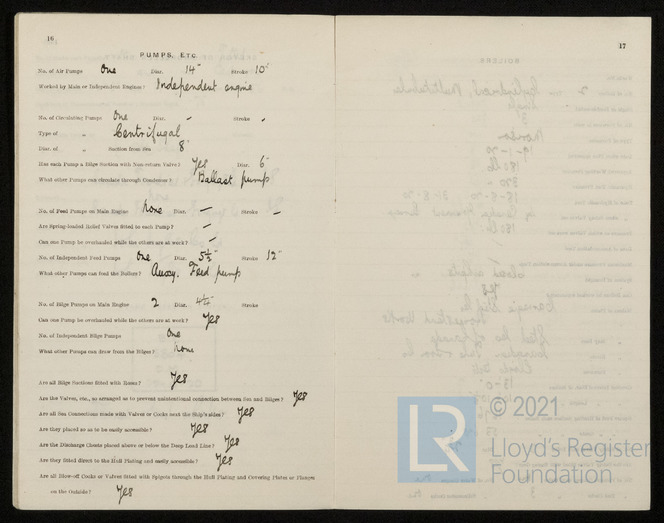 16
PUMPS, ETC.
No. of Air Pumps One Diar. 14" Stroke 10"
Worked by Main or Independent Engines? Independent engine
No. of Circulating Pumps One Diar. - Stroke -
Type of " Centrifugal
Diar. of " Suction from Sea 8"
Has each Pump a Bilge Suction with Non-return Valve? Yes Diar. 6"
What other Pumps can circulate through Condenser? Ballast pump
No. of Feed Pumps on Main Engine None Diar. - Stroke -
Are Spring-loaded Relief Valves fitted to each Pump? -
Can one Pump be overhauled while the others are at work? -
No. of Independent Feed Pumps One Diar. 5½" Stroke 12"
What other Pumps can feed the Boilers? Auxy. Feed pump
No. of Bilge Pumps on Main Engine 2 Diar. 4¼" Stroke
Can one Pump be overhauled while the others are at work? Yes
No. of Independent Bilge Pumps One
What other Pumps can draw from the Bilges? None
Are all Bilge Suctions fitted with Roses? Yes
Are the Valves, etc., so arranged as to prevent unintentional connection between Sea and Bilges? Yes
Are all Sea Connections made with Valves or Cocks next the Ship's sides? Yes
Are they placed so as to be easily accessible? Yes
Are the Discharge Chests placed above or below the Deep Load Line? Yes
Are they fitted direct to the Hull Plating and easily accessible? Yes
Are all Blow-off Cocks or Valves fitted with Spigots through the Hull Plating and Covering Plates or Flanges
on the Outside? Yes
17
LR
© 2021
Lloyd's Register
Foundation